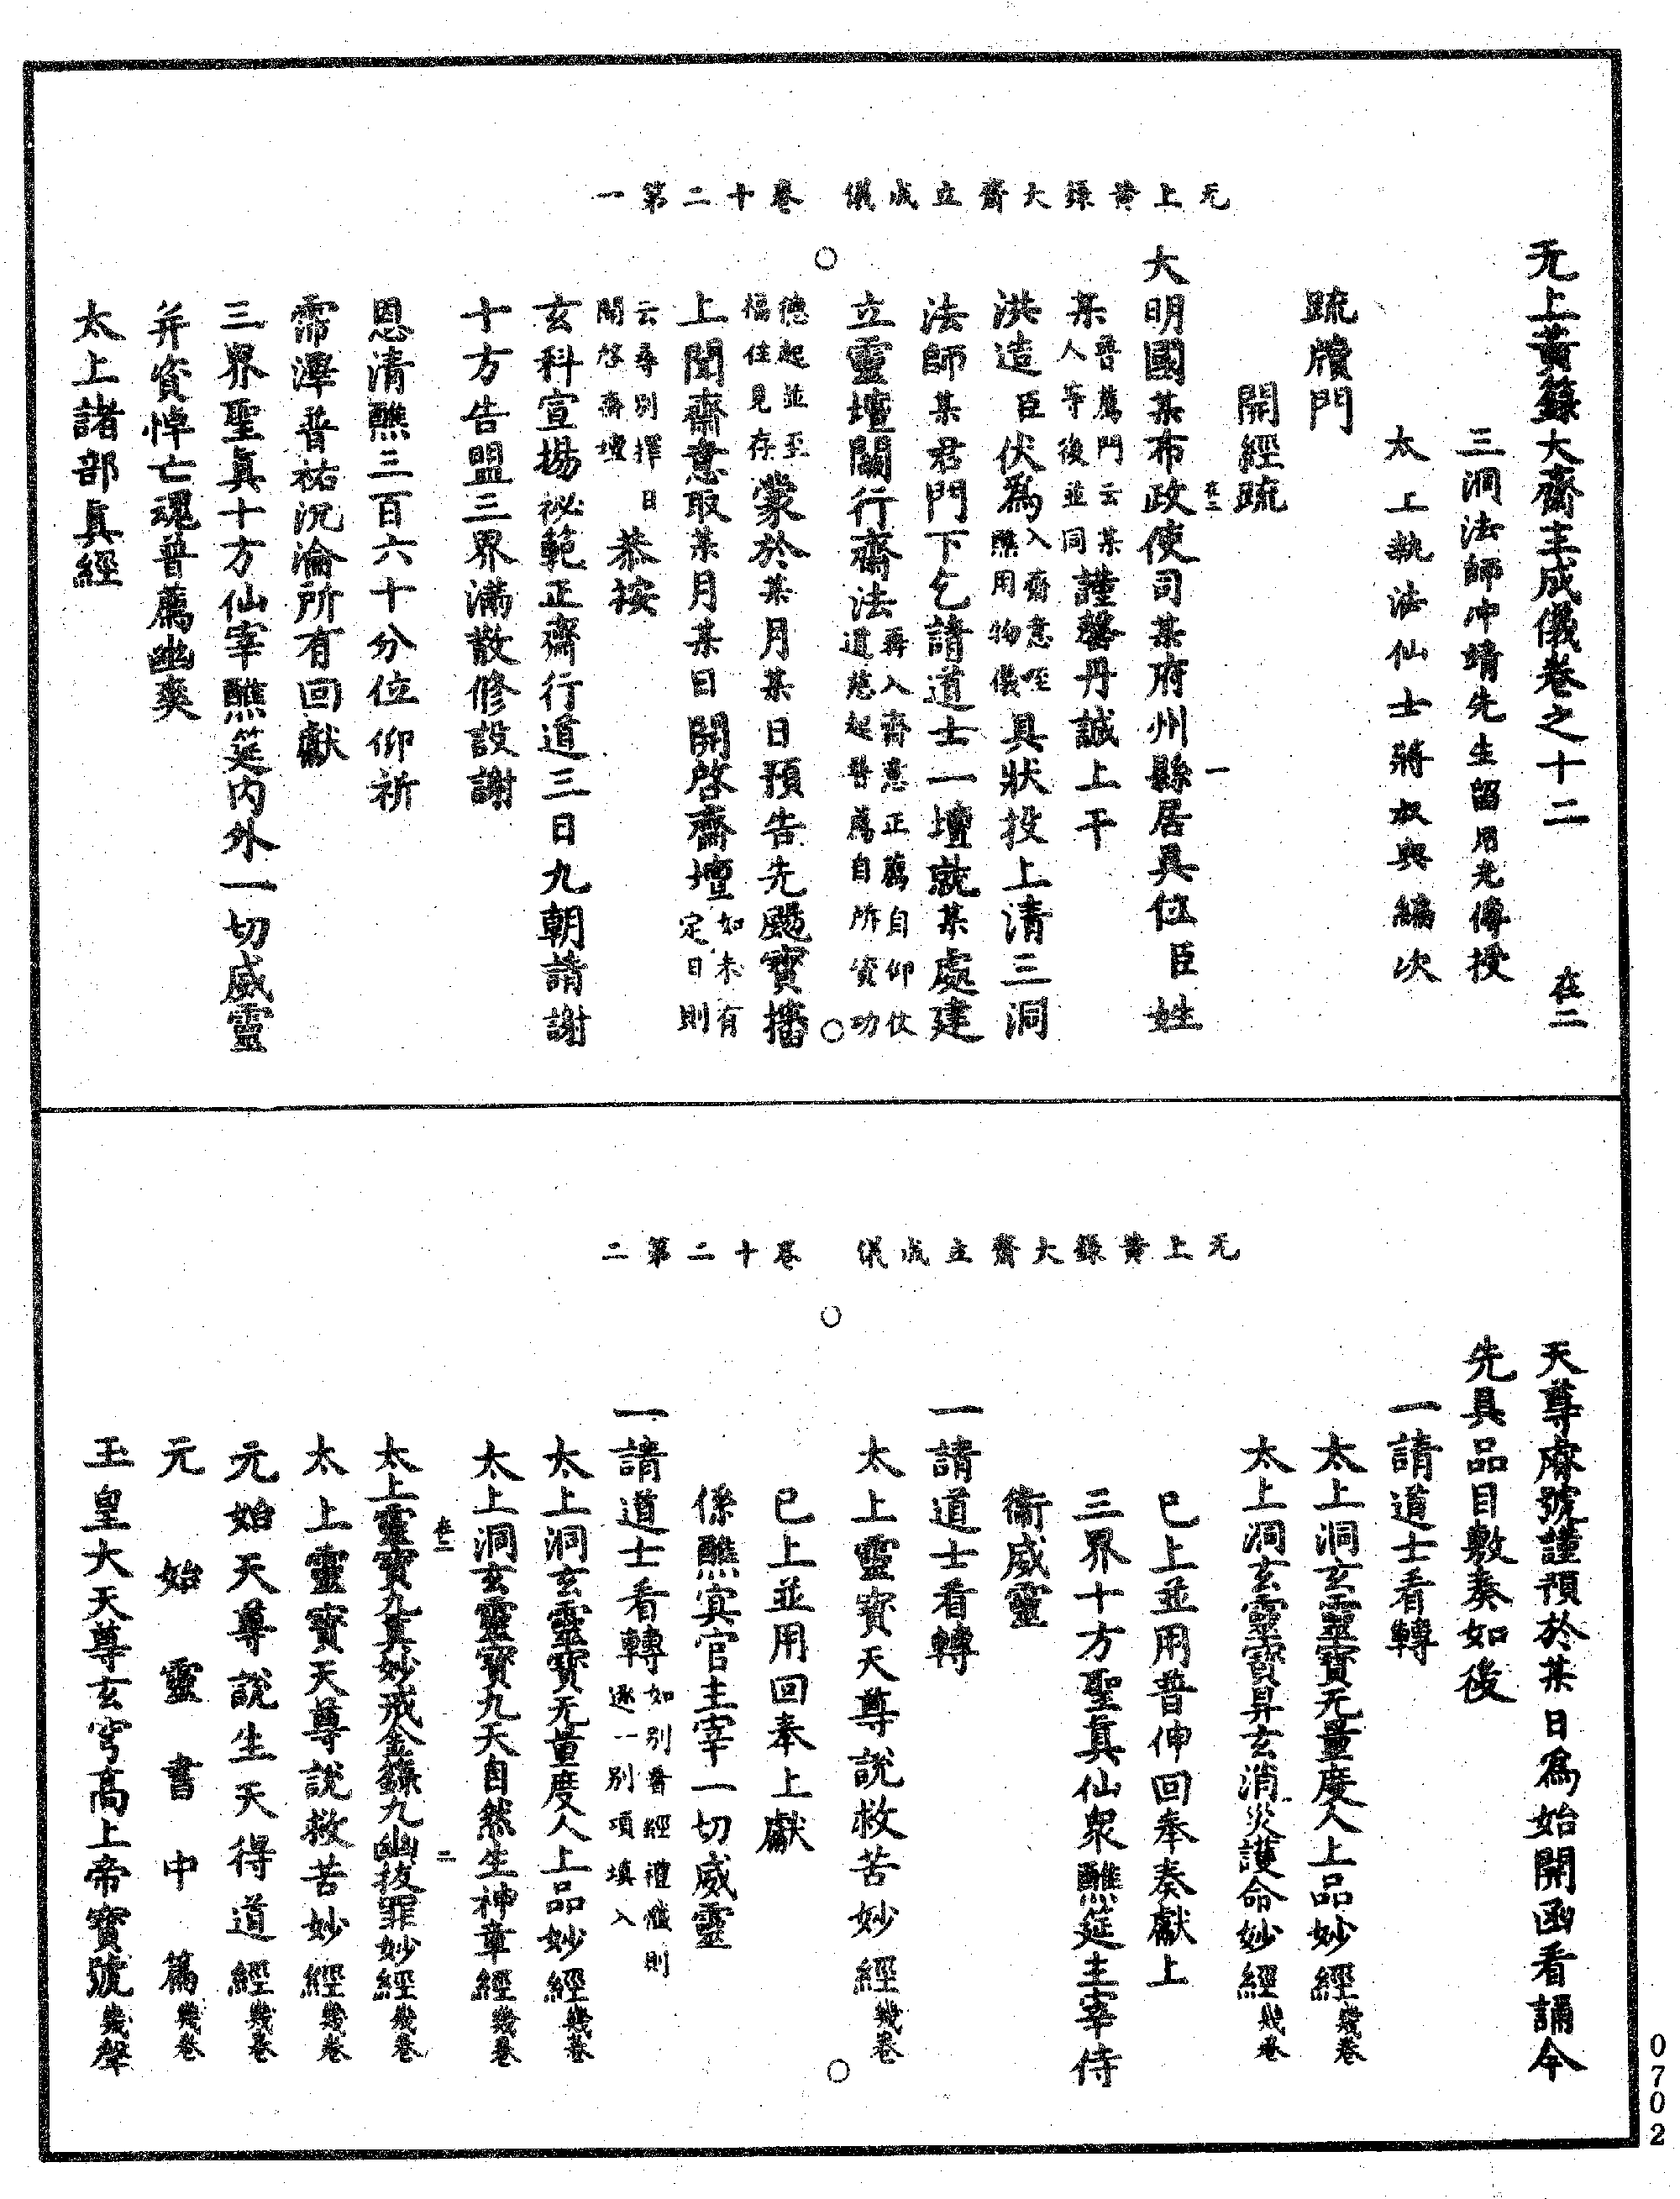 无上黃籙大齋立成儀 卷十二第一
无上黃籙大齋立成儀卷之十二 在二
三洞法師冲靖先生留用光傳授
太上執法仙士蔣叔輿編次
疏牘門
開經疏
在二 一
大明國某布政使司某府州縣居具位臣姓
某普薦門云某人等後並同謹罄丹誠上干
洪造臣伏為入齋意至醮用物儀具狀投上清三洞
法師某君門下乞請道士一壇就某處建
立靈壇關行齋法再入齋意正薦自仰仗道慈起普薦自所資功
德起並至福住見存蒙於某月某日預告先颺寶旛
上聞齋意取某月某日開啓齋壇如未有定日則
云尋別擇日開啓齋壇恭按
玄科宣揚祕範正齋行道三日九朝請謝
十方告盟三界滿散修設謝
恩清醮三百六十分位仰祈
霈澤普祐沉淪所有回獻
三界聖眞十方仙宰醮筵內外一切威靈
并資悼亡魂普薦幽爽
太上諸部眞經
无上黃籙大齋立成儀 卷十二第二
天尊膚號謹預於某日為始開函看誦今
先具品目敷奏如後
一請道士看轉
太上洞玄靈寶无量度人上品妙經幾卷
太上洞玄靈寶昇玄消災護命妙經幾卷
已上並用普伸回奉奏獻上
三界十方聖眞仙衆醮筵主宰侍
衞威靈
一請道士看轉
太上靈寶天尊說救苦妙經幾卷
已上並用回奉上獻
係醮宾官主宰一切威靈
一請道士看轉如別看經禮懺則逐一別項填入
太上洞玄靈寶无量度人上品妙經幾卷
太上洞玄靈寶九天自然生神章經幾卷
在二 二
太上靈寶九真妙戒金籙九幽拔罪妙經幾卷
太上靈寶天尊說救苦妙經幾卷
元始天尊說生天得道經幾卷
元始靈書中篇幾卷
玉皇大天尊玄穹高上帝寶號幾聲
0702